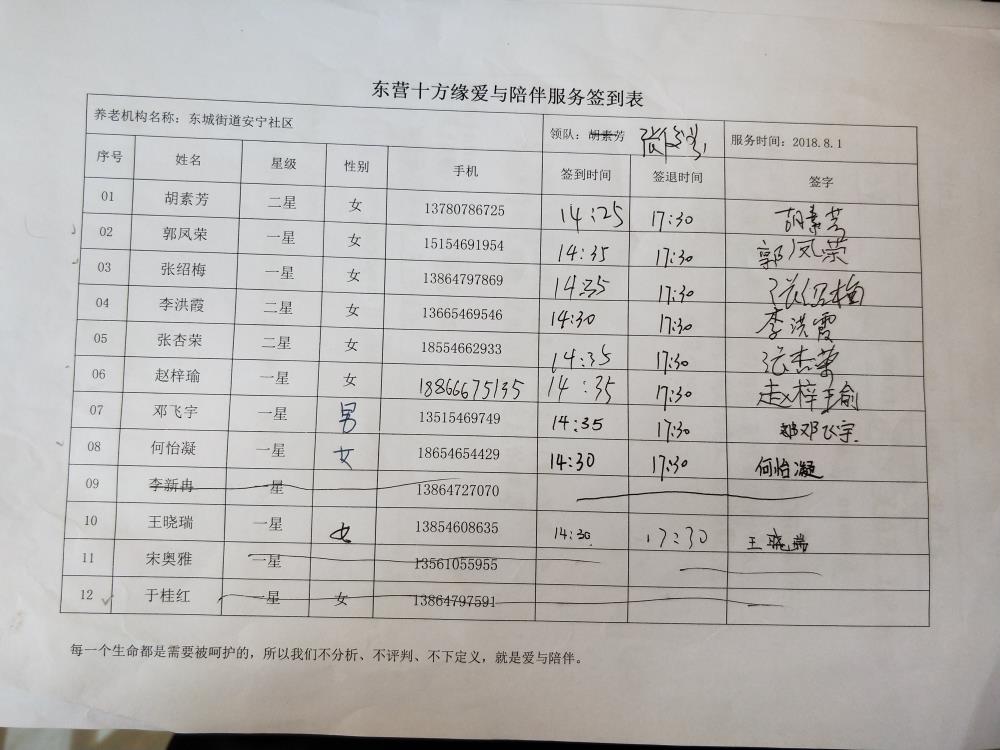 东营十方缘爱与陪伴服务签到表
养老机构名称：东城街道安宁社区 领队：胡素芳 服务时间：2018.8.1
序号 姓名 星级 性别 手机 签到时间 签退时间 签字
01 胡素芳 二星 女 13780786725 14:25 17:30 胡素芳
02 郭凤荣 一星 女 15154691954 14:35 17:30 郭凤荣
03 张绍梅 一星 女 13864797869 14:35 17:30 张绍梅
04 李洪霞 二星 女 13665469546 14:30 17:30 李洪霞
05 张杏荣 二星 女 18554662933 14:35 17:30 张杰荣
06 赵梓瑜 一星 女 18866675135 14:35 17:30 赵梓瑜
07 邓飞宇 一星 男 13515469749 14:35 17:30 邓飞宇
08 何怡凝 一星 女 18654654429 14:30 17:30 何怡凝
09 李新冉 一星 13864727070
10 王晓瑞 一星 女 13854608635 14:30 17:30 王晓瑞
11 宋奥雅 一星 13561055955
12 于桂红 一星 女 13864797591
每一个生命都是需要被呵护的，所以我们不分析、不评判、不下定义，就是爱与陪伴。